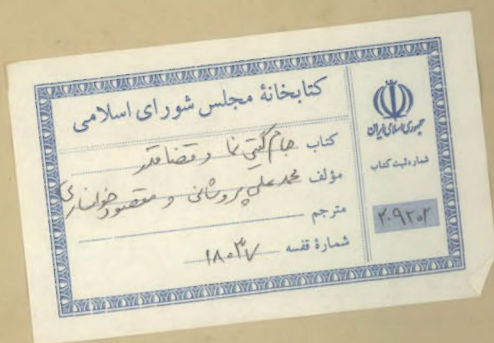 کتابخانهٔ مجلس شورای اسلامی
کتاب جام گیتی نما و قضا قدر
مؤلف محمد علی و مقصود خوانساری
مترجم
شمارهٔ قفسه ۱۸۰۳۷
جمهوری اسلامی ایران
شماره ثبت کتاب
۲۰۹۲۰۲